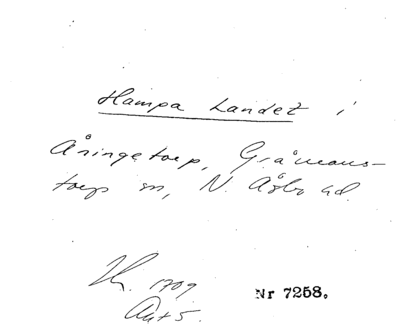 Hampa Landet i
Åringetorp, Gråmans-
torps sn, N. Åsbo hd.
1709
Akt 5.
Nr 7258.